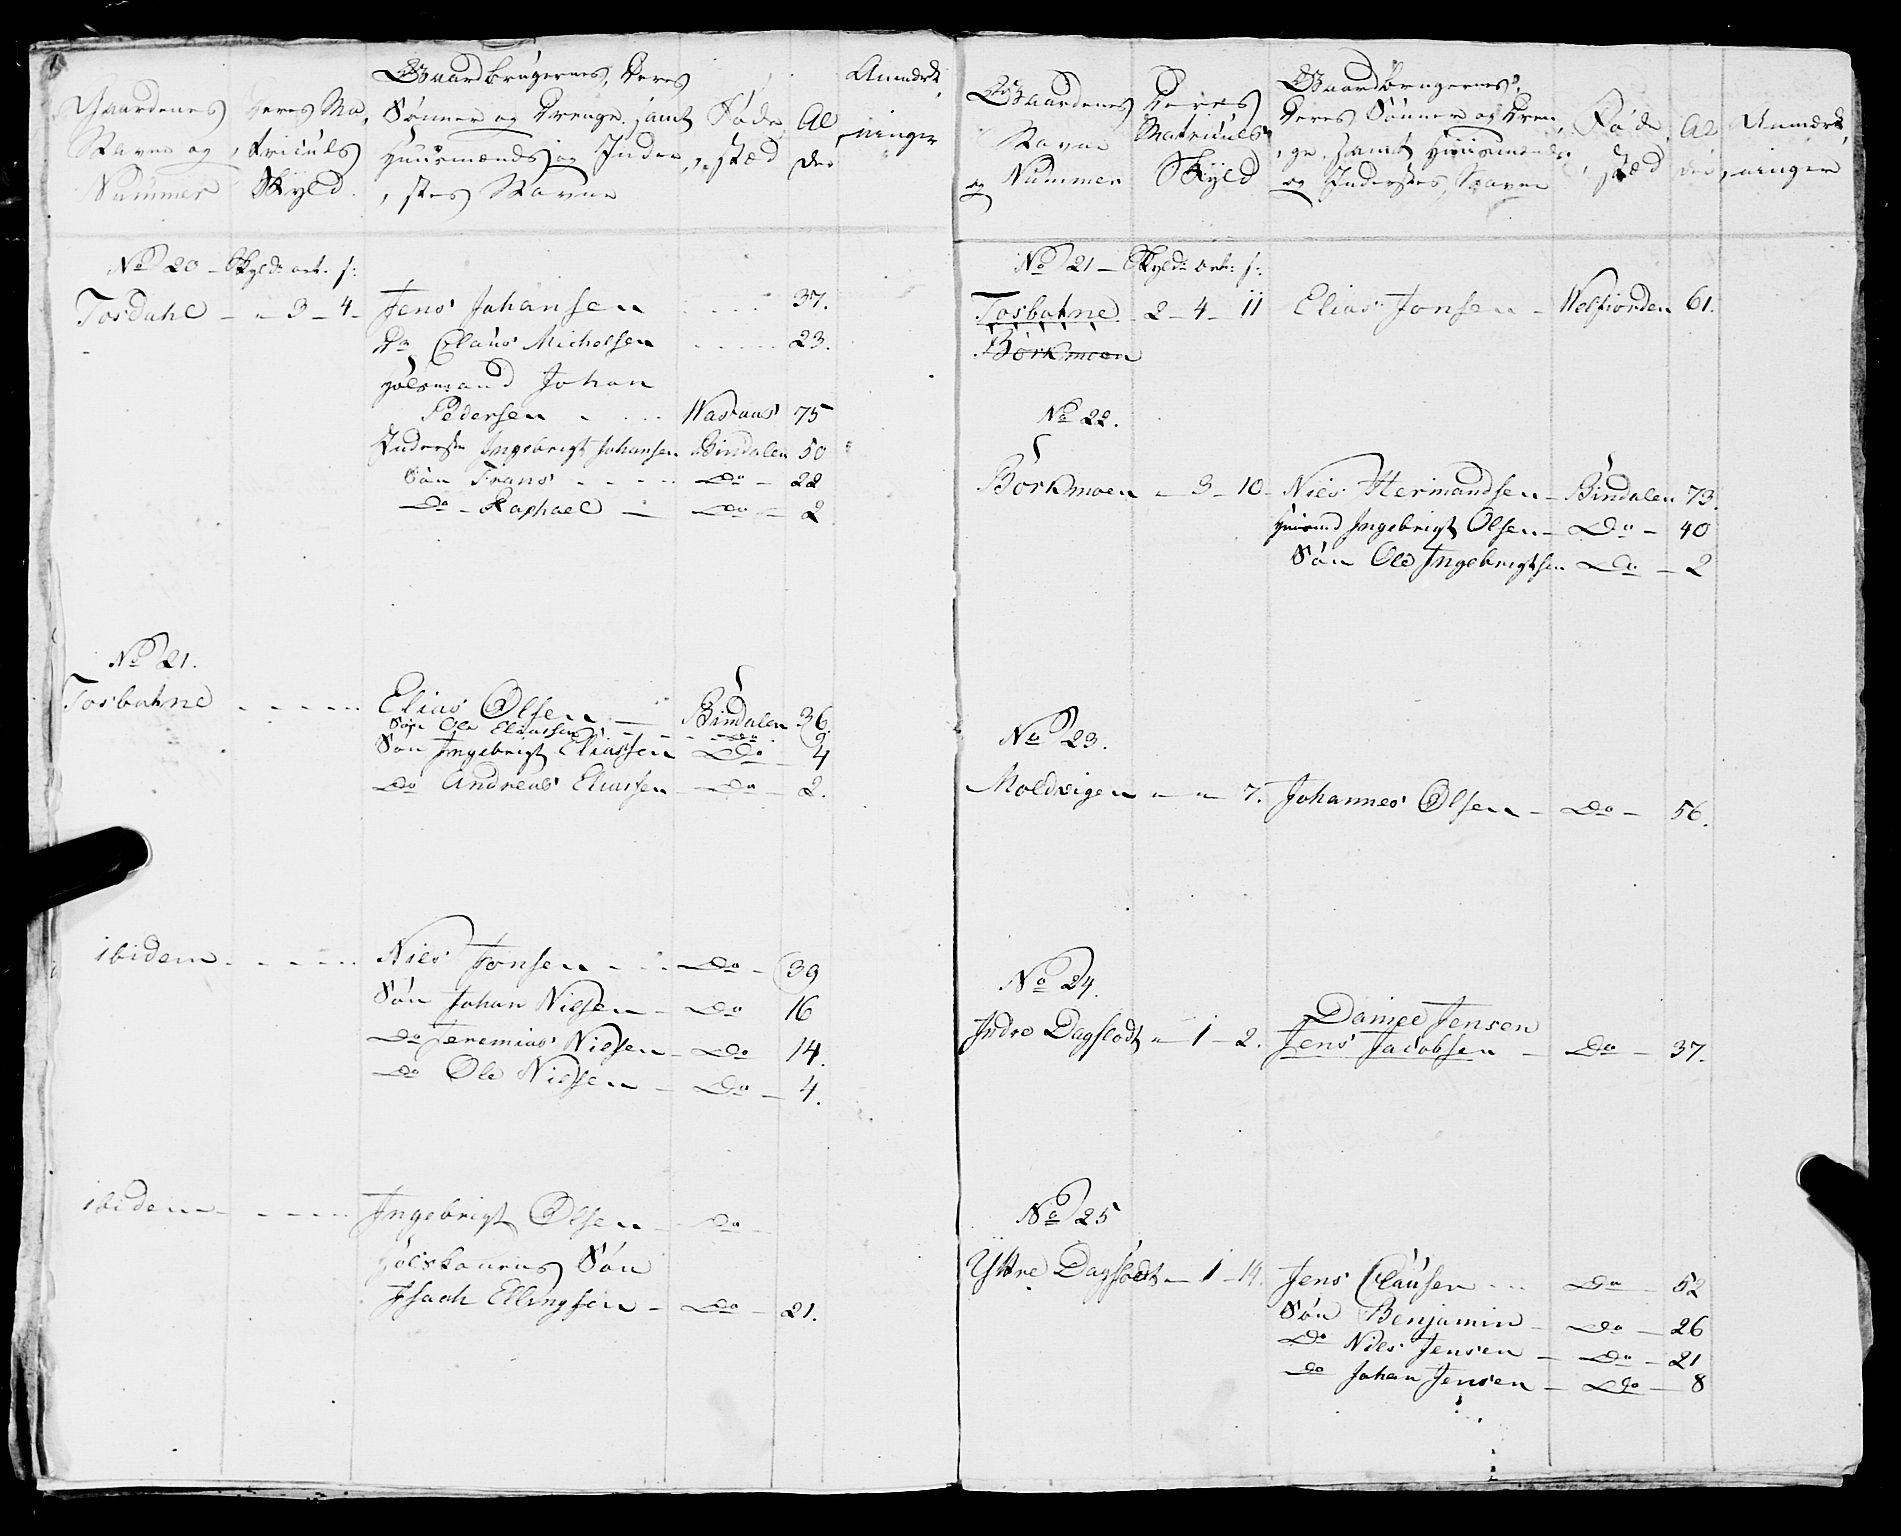 Gaardenes
Navne og
Nummer
Deres Ma,
,triculs
Skyld.
Gaardbrugernes, Deres
Sønner og Drenge, samt
Huusmænds og Inder,
,stes Navne
Føde,
,stæd
Al
der
Anmærk,
,ninger
No 20 - Skyld ort. s:
Tosdahl - " 3 - 4 - Jens Johansen . . . . 37.
Do Claus Michelsen . . . . . 23.
Johan
Pedersen - . . . Wassaas 75
Inderste Ingebrigt Johansen Bindalen 50
Søn Frans . - - - - Do - 22
Do - Raphael - Do - 2
No 21.
Tosbotne - - - - - Elias Olsen - Bindalen 36.
Søn Ole Eliassen - - - Do 9
Søn Ingebrigt Eliassen Do - 4
Do Andreas Eliassen - Do - 2.
ibidem - - - - - Niels Jonsen - - - Do - 39
Søn Johan Nielsen - Do 16
Do Jeremias Nielsen - Do 14.
Do Ole Nielsen - Do - 4.
ibidem - - - - - Ingebrigt Olsen - Do -
Søn
Isach Ellingsen - Do - 21.
Gaardenes
Navne
og Nummer
Deres
Matriculs
Skyld
Gaardbrugernes,
Deres Sønner og Dren,
,ge, samt Huusmænds
og Inderstes, Navne
Føde,
,stæd
Al
der
Anmærk,
,ninger
No 21 - Skyld ort: s:
Tosbotne 2 - 4 - 11 Elias Jonsen - Welfiorden 61.
Børkmoen
No 22.
Børkmoen - 3 - 10 - Niels Hermandsen - Bindalen 73.
Ingebrigt Olsen - Do - 40
Søn Ole Ingebrigtsen Do - 2
No 23.
Moldvigen - " - 7. Johannes Olsen - Do - 56.
No 24.
Daniel Jensen
Indre Dagslodt " 1 - 2. Jens Jacobsen - Do - 37.
No 25
Yttre Dagslodt - 1 - 14. Jens Clausen - - Do - 52
Søn Benjamin - Do - 26
Do Niels Jensen - Do - 21
Do Johan Jensen - Do - 8